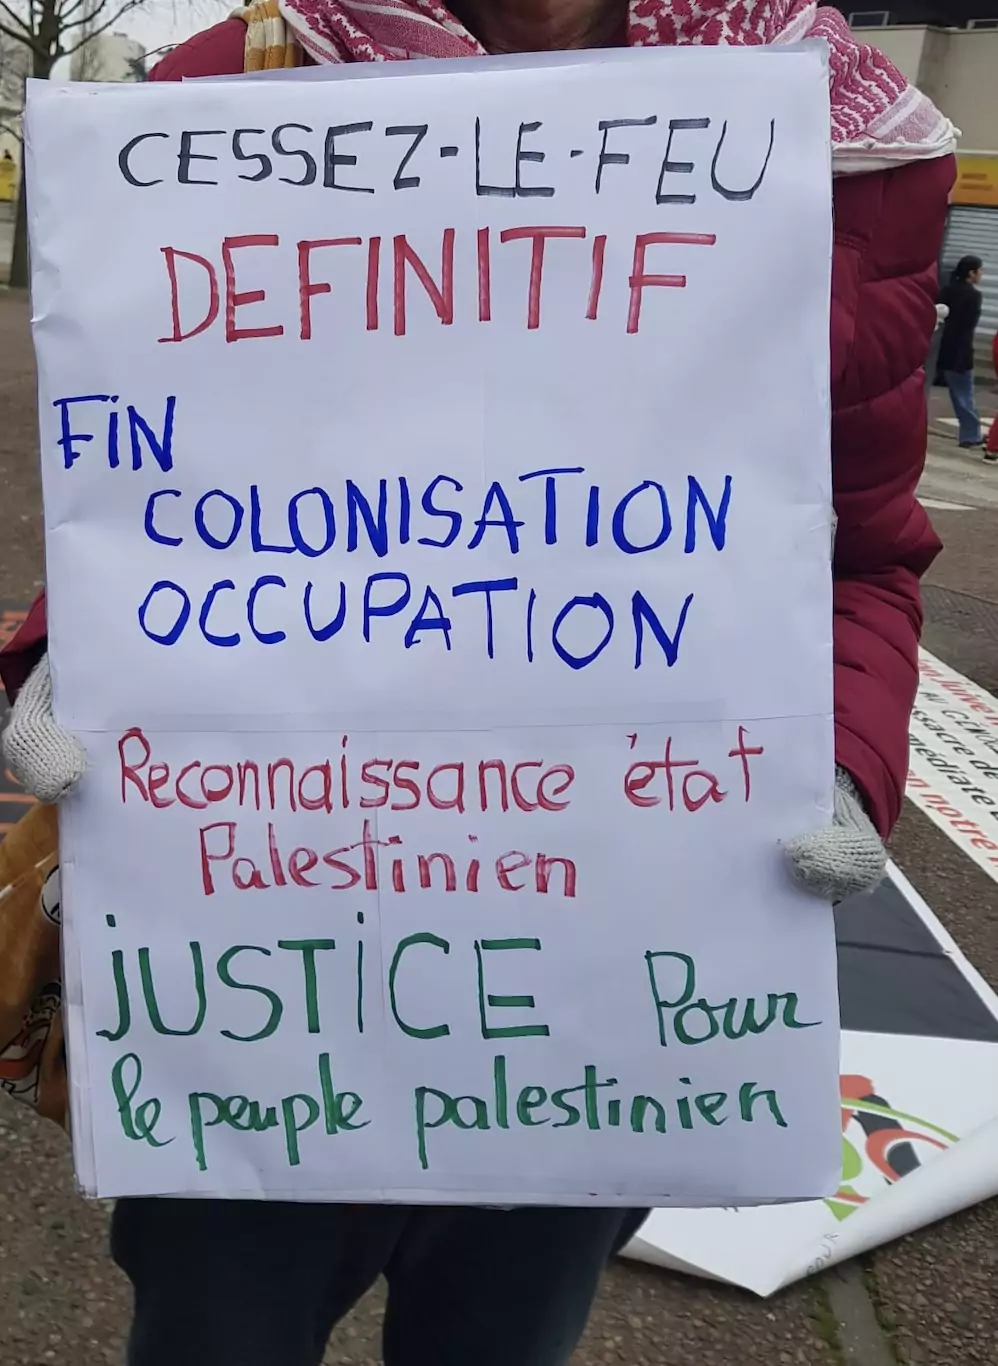 CESSEZ-LE-FEU
DEFINITIF
FiN
COLONISATION
OCCUPATION
Reconnaissance état
Palestinien
jUSTiCE Pour
le peuple palestinien
massacre de
médiate
notre